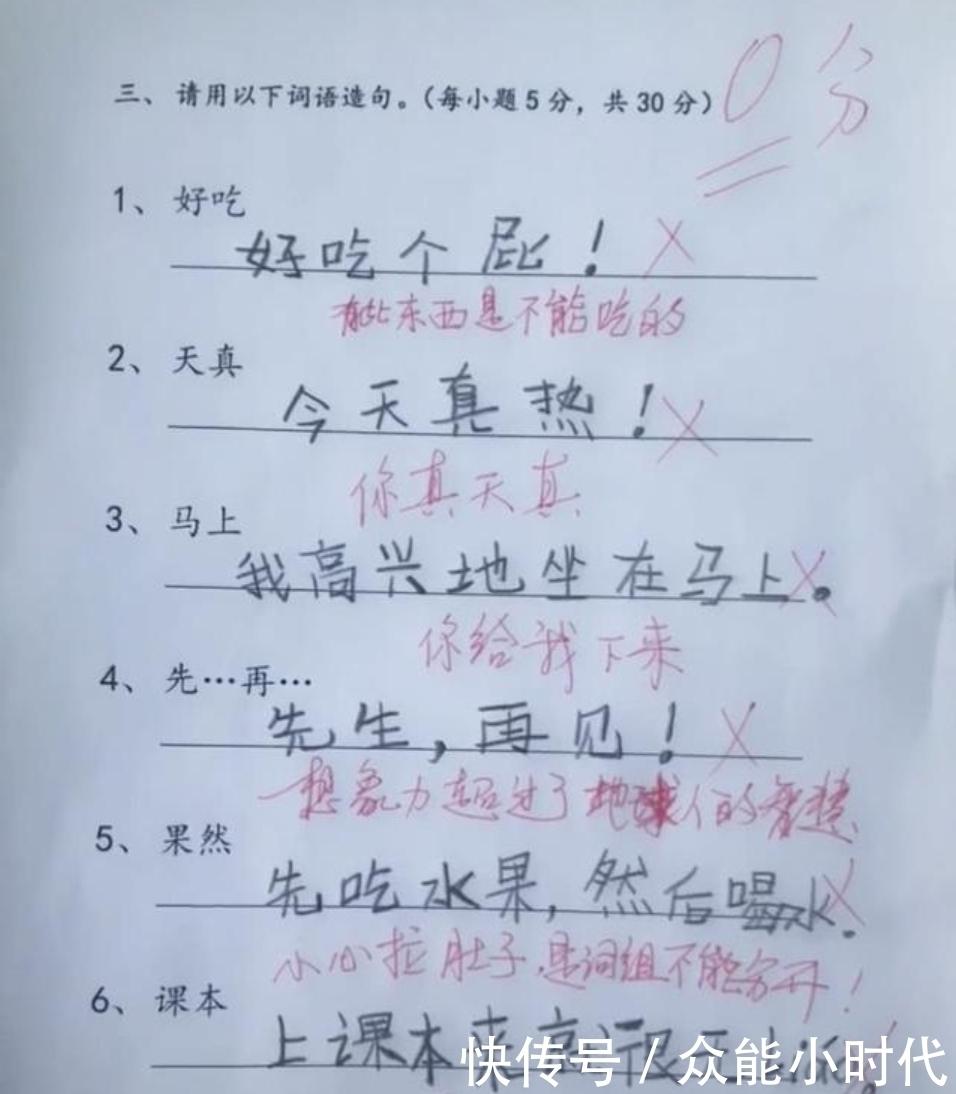 三、请用以下词语造句。（每小题5分，共30分）
0分
1、好吃
好吃个屁！
有些东西是不能吃的
2、天真
今天真热！
你真天真
3、马上
我高兴地坐在马上。
你给我下来
4、先…再…
先生，再见！
想象力超过了地球人的智慧
5、果然
先吃水果，然后喝水.
小心拉肚子.是词组不能分开！
6、课本
上课本来
快传号/众能小时代